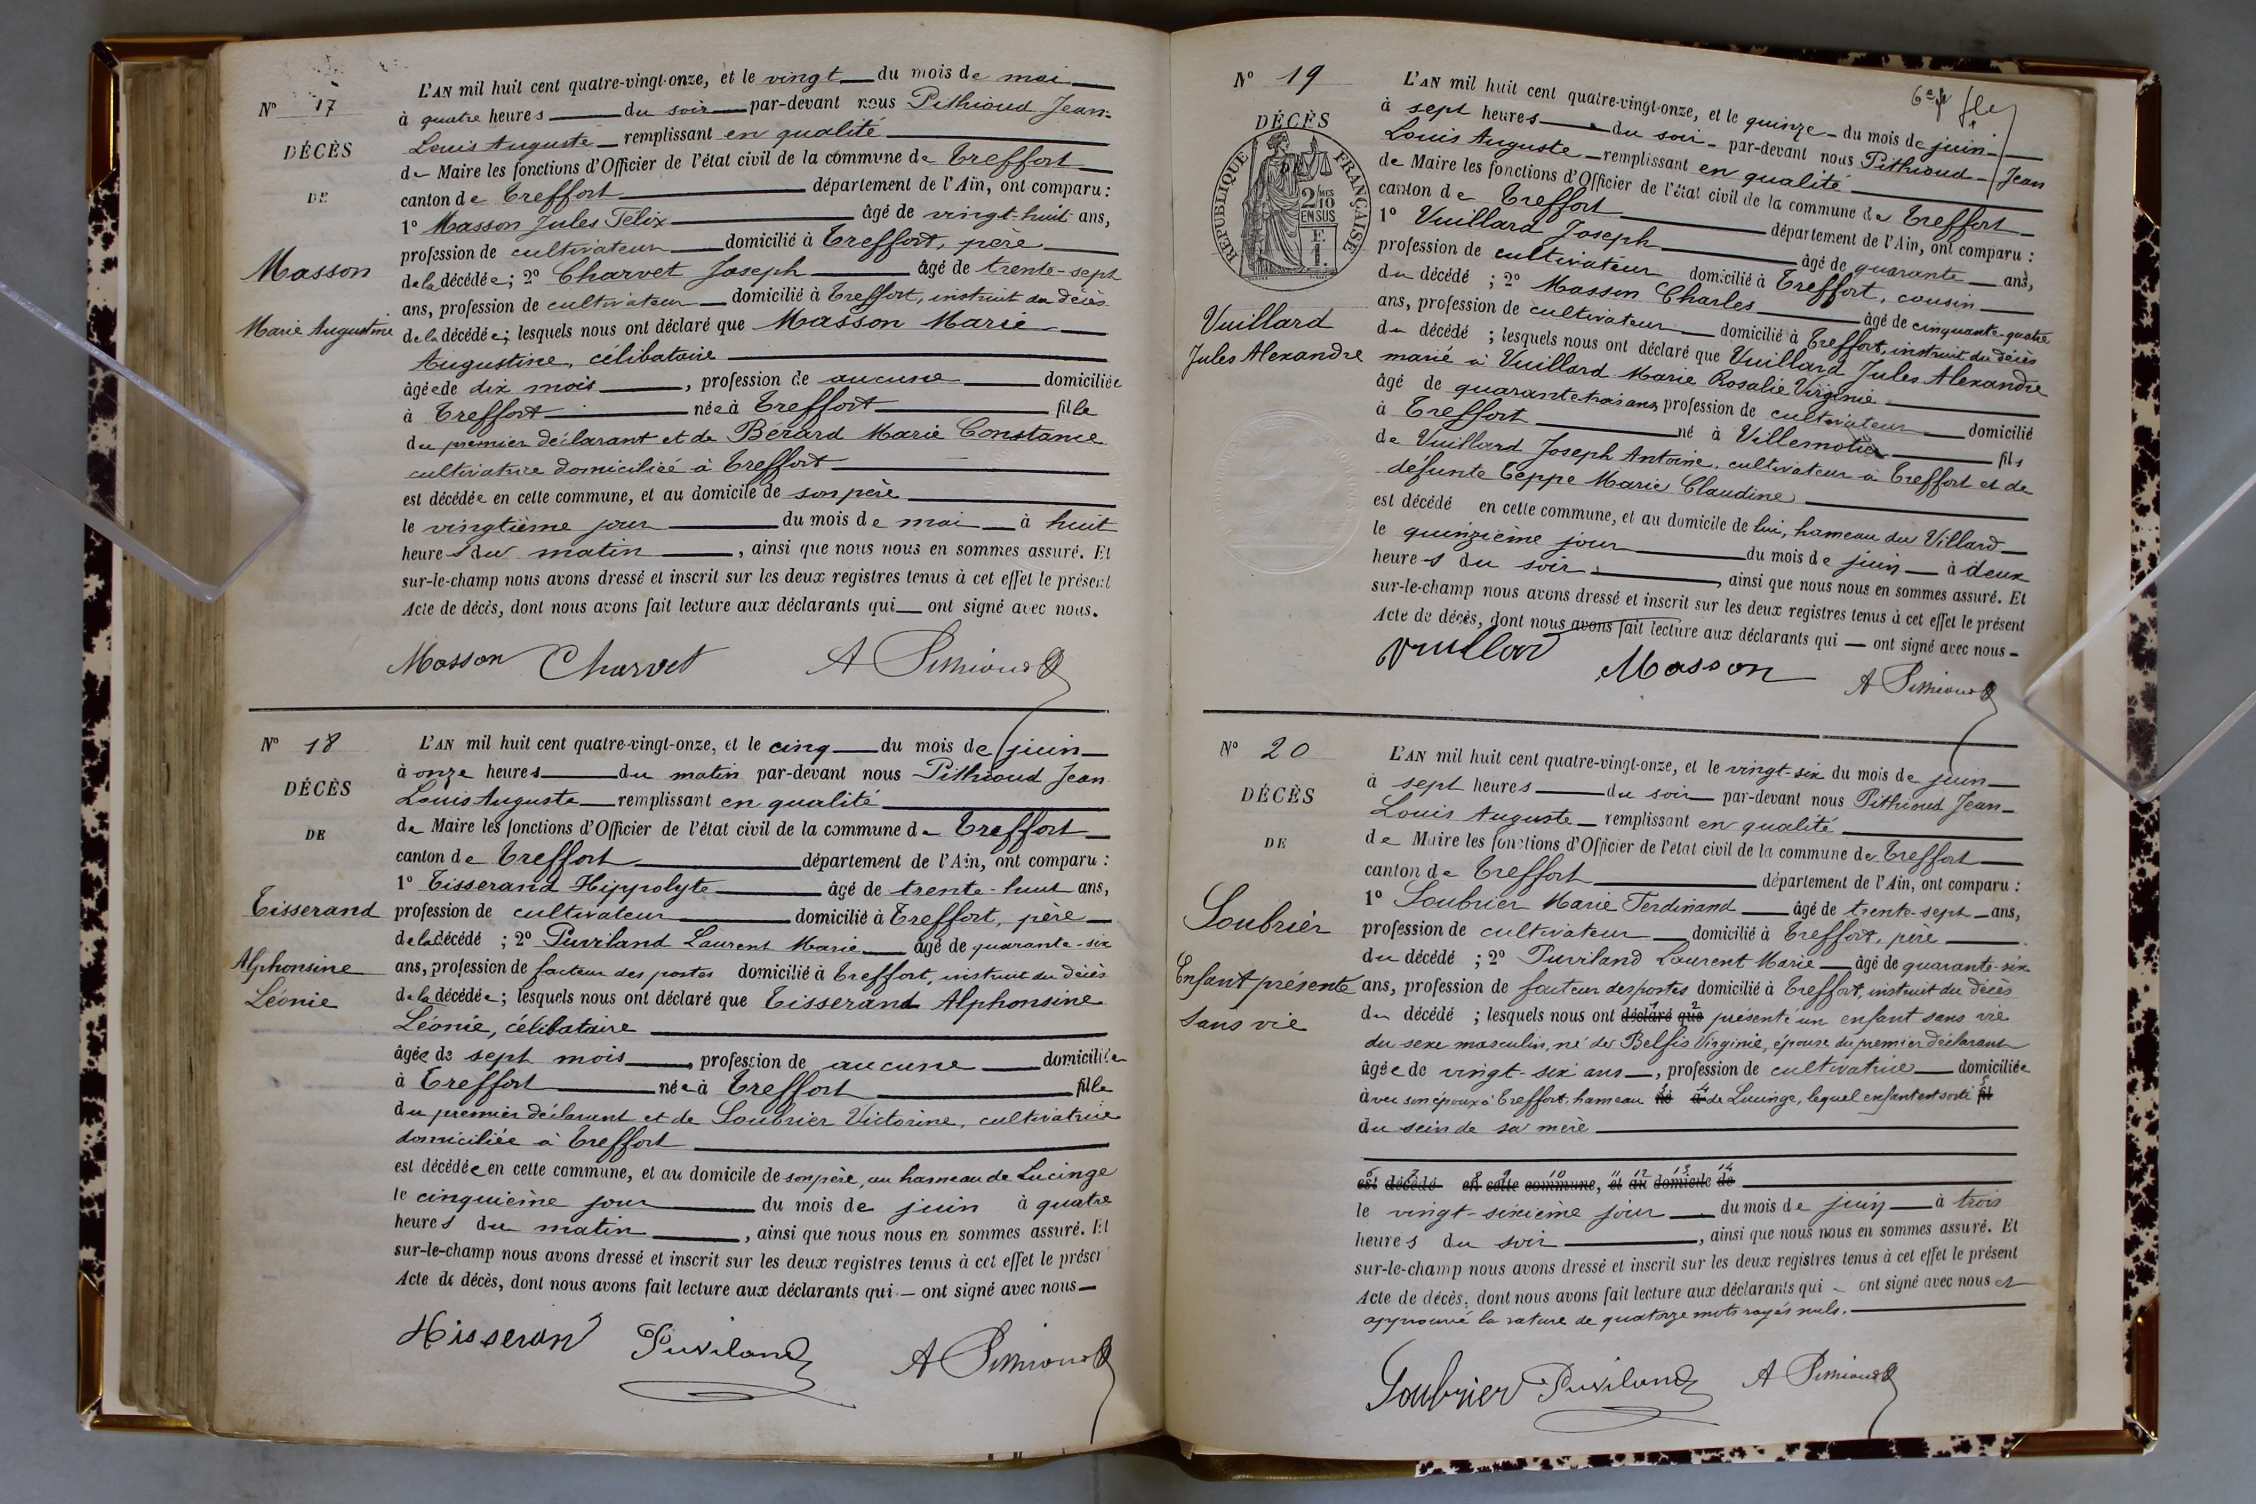 N° 17
DÉCÈS
DE
Masson
Marie Augustine
L'AN mil huit cent quatre-vingt-onze, et le vingt du mois de mai
à quatre heures du soir par-devant nous Pithioud Jean-
Louis Auguste remplissant en qualité
de Maire les fonctions d'Officier de l'état civil de la commune de Treffort
canton de Treffort département de l'Ain, ont comparu :
1° Masson Jules Félix âgé de vingt-huit ans,
profession de cultivateur domicilié à Treffort, père
de la décédée ; 2° Charvet Joseph âgé de trente-sept
ans, profession de cultivateur domicilié à Treffort, instruit du décès
de la décédée ; lesquels nous ont déclaré que Masson Marie
Augustine, célibataire
âgée de dix mois, profession de aucune domiciliée
à Treffort née à Treffort fille
du premier déclarant et de Bérard Marie Constance
cultivatrice domiciliée à Treffort
est décédée en cette commune, et au domicile de son père
le vingtième jour du mois de mai à huit
heures du matin, ainsi que nous nous en sommes assuré. Et
sur-le-champ nous avons dressé et inscrit sur les deux registres tenus à cet effet le présent
Acte de décès, dont nous avons fait lecture aux déclarants qui ont signé avec nous.
Masson Charvet A Pithioud
N° 18
DÉCÈS
DE
Tisserand
Alphonsine
Léonie
L'AN mil huit cent quatre-vingt-onze, et le cinq du mois de juin
à onze heures du matin par-devant nous Pithioud Jean
Louis Auguste remplissant en qualité
de Maire les fonctions d'Officier de l'état civil de la commune de Treffort
canton de Treffort département de l'Ain, ont comparu :
1° Tisserand Hippolyte âgé de trente-huit ans,
profession de cultivateur domicilié à Treffort, père
de la décédé ; 2° Puvilland Laurent Marie âgé de quarante-six
ans, profession de facteur des postes domicilié à Treffort, instruit du décès
de la décédée ; lesquels nous ont déclaré que Tisserand Alphonsine
Léonie, célibataire
âgée de sept mois, profession de aucune domiciliée
à Treffort née à Treffort fille
du premier déclarant et de Soubrier Victorine, cultivatrice
domiciliée à Treffort
est décédée en cette commune, et au domicile de son père, au hameau de Lucinge
le cinquième jour du mois de juin à quatre
heures du matin, ainsi que nous nous en sommes assuré. Et
sur-le-champ nous avons dressé et inscrit sur les deux registres tenus à cet effet le présen
Acte de décès, dont nous avons fait lecture aux déclarants qui ont signé avec nous
Tisseran Puviland A Pithioud
N° 19
DÉCÈS
RÉPUBLIQUE FRANÇAISE
2/10
EN SUS
Vuillard
Jules Alexandre
L'AN mil huit cent quatre-vingt-onze, et le quinze du mois de juin
à sept heures du soir par-devant nous Pithioud Jean
Louis Auguste remplissant en qualité
de Maire les fonctions d'Officier de l'état civil de la commune de Treffort
canton de Treffort département de l'Ain, ont comparu :
1° Vuillard Joseph âgé de quarante ans,
profession de cultivateur domicilié à Treffort, cousin
du décédé ; 2° Masson Charles âgé de cinquante-quatre
ans, profession de cultivateur domicilié à Treffort, instruit du décès
du décédé ; lesquels nous ont déclaré que Vuillard Jules Alexandre
marié à Vuillard Marie Rosalie Virginie
âgé de quarante trois ans, profession de cultivateur domicilié
à Treffort né à Villemotier fils
de Vuillard Joseph Antoine, cultivateur à Treffort et de
défunte Teppe Marie Claudine
est décédé en cette commune, et au domicile de lui, hameau du Villard
le quinzième jour du mois de juin à deux
heures du soir, ainsi que nous nous en sommes assuré. Et
sur-le-champ nous avons dressé et inscrit sur les deux registres tenus à cet effet le présent
Acte de décès, dont nous avons fait lecture aux déclarants qui ont signé avec nous
Vuillard Masson A Pithioud
N° 20
DÉCÈS
DE
Soubrier
Enfant présenté
sans vie
L'AN mil huit cent quatre-vingt-onze, et le vingt-six du mois de juin
à sept heures du soir par-devant nous Pithioud Jean
Louis Auguste remplissant en qualité
de Maire les fonctions d'Officier de l'état civil de la commune de Treffort
canton de Treffort département de l'Ain, ont comparu :
1° Soubrier Marie Ferdinand âgé de trente-sept ans,
profession de cultivateur domicilié à Treffort, père
du décédé ; 2° Puvilland Laurent Marie âgé de quarante-six
ans, profession de facteur des postes domicilié à Treffort, instruit du décès
du décédé ; lesquels nous ont déclaré que présenté un enfant sans vie
du sexe masculin, né de Belfis Virginie, épouse du premier déclarant
âgée de vingt-six ans, profession de cultivatrice domiciliée
à avec son époux à Treffort, hameau né à de Lucinge, lequel enfant est sorti fil
du sein de sa mère
est décédé en cette commune, et au domicile de
le vingt-sixième jour du mois de juin à trois
heures du soir, ainsi que nous nous en sommes assuré. Et
sur-le-champ nous avons dressé et inscrit sur les deux registres tenus à cet effet le présent
Acte de décès, dont nous avons fait lecture aux déclarants qui ont signé avec nous et
approuvé la rature de quatorze mots rayés nuls.
Soubrier Puviland A Pithioud